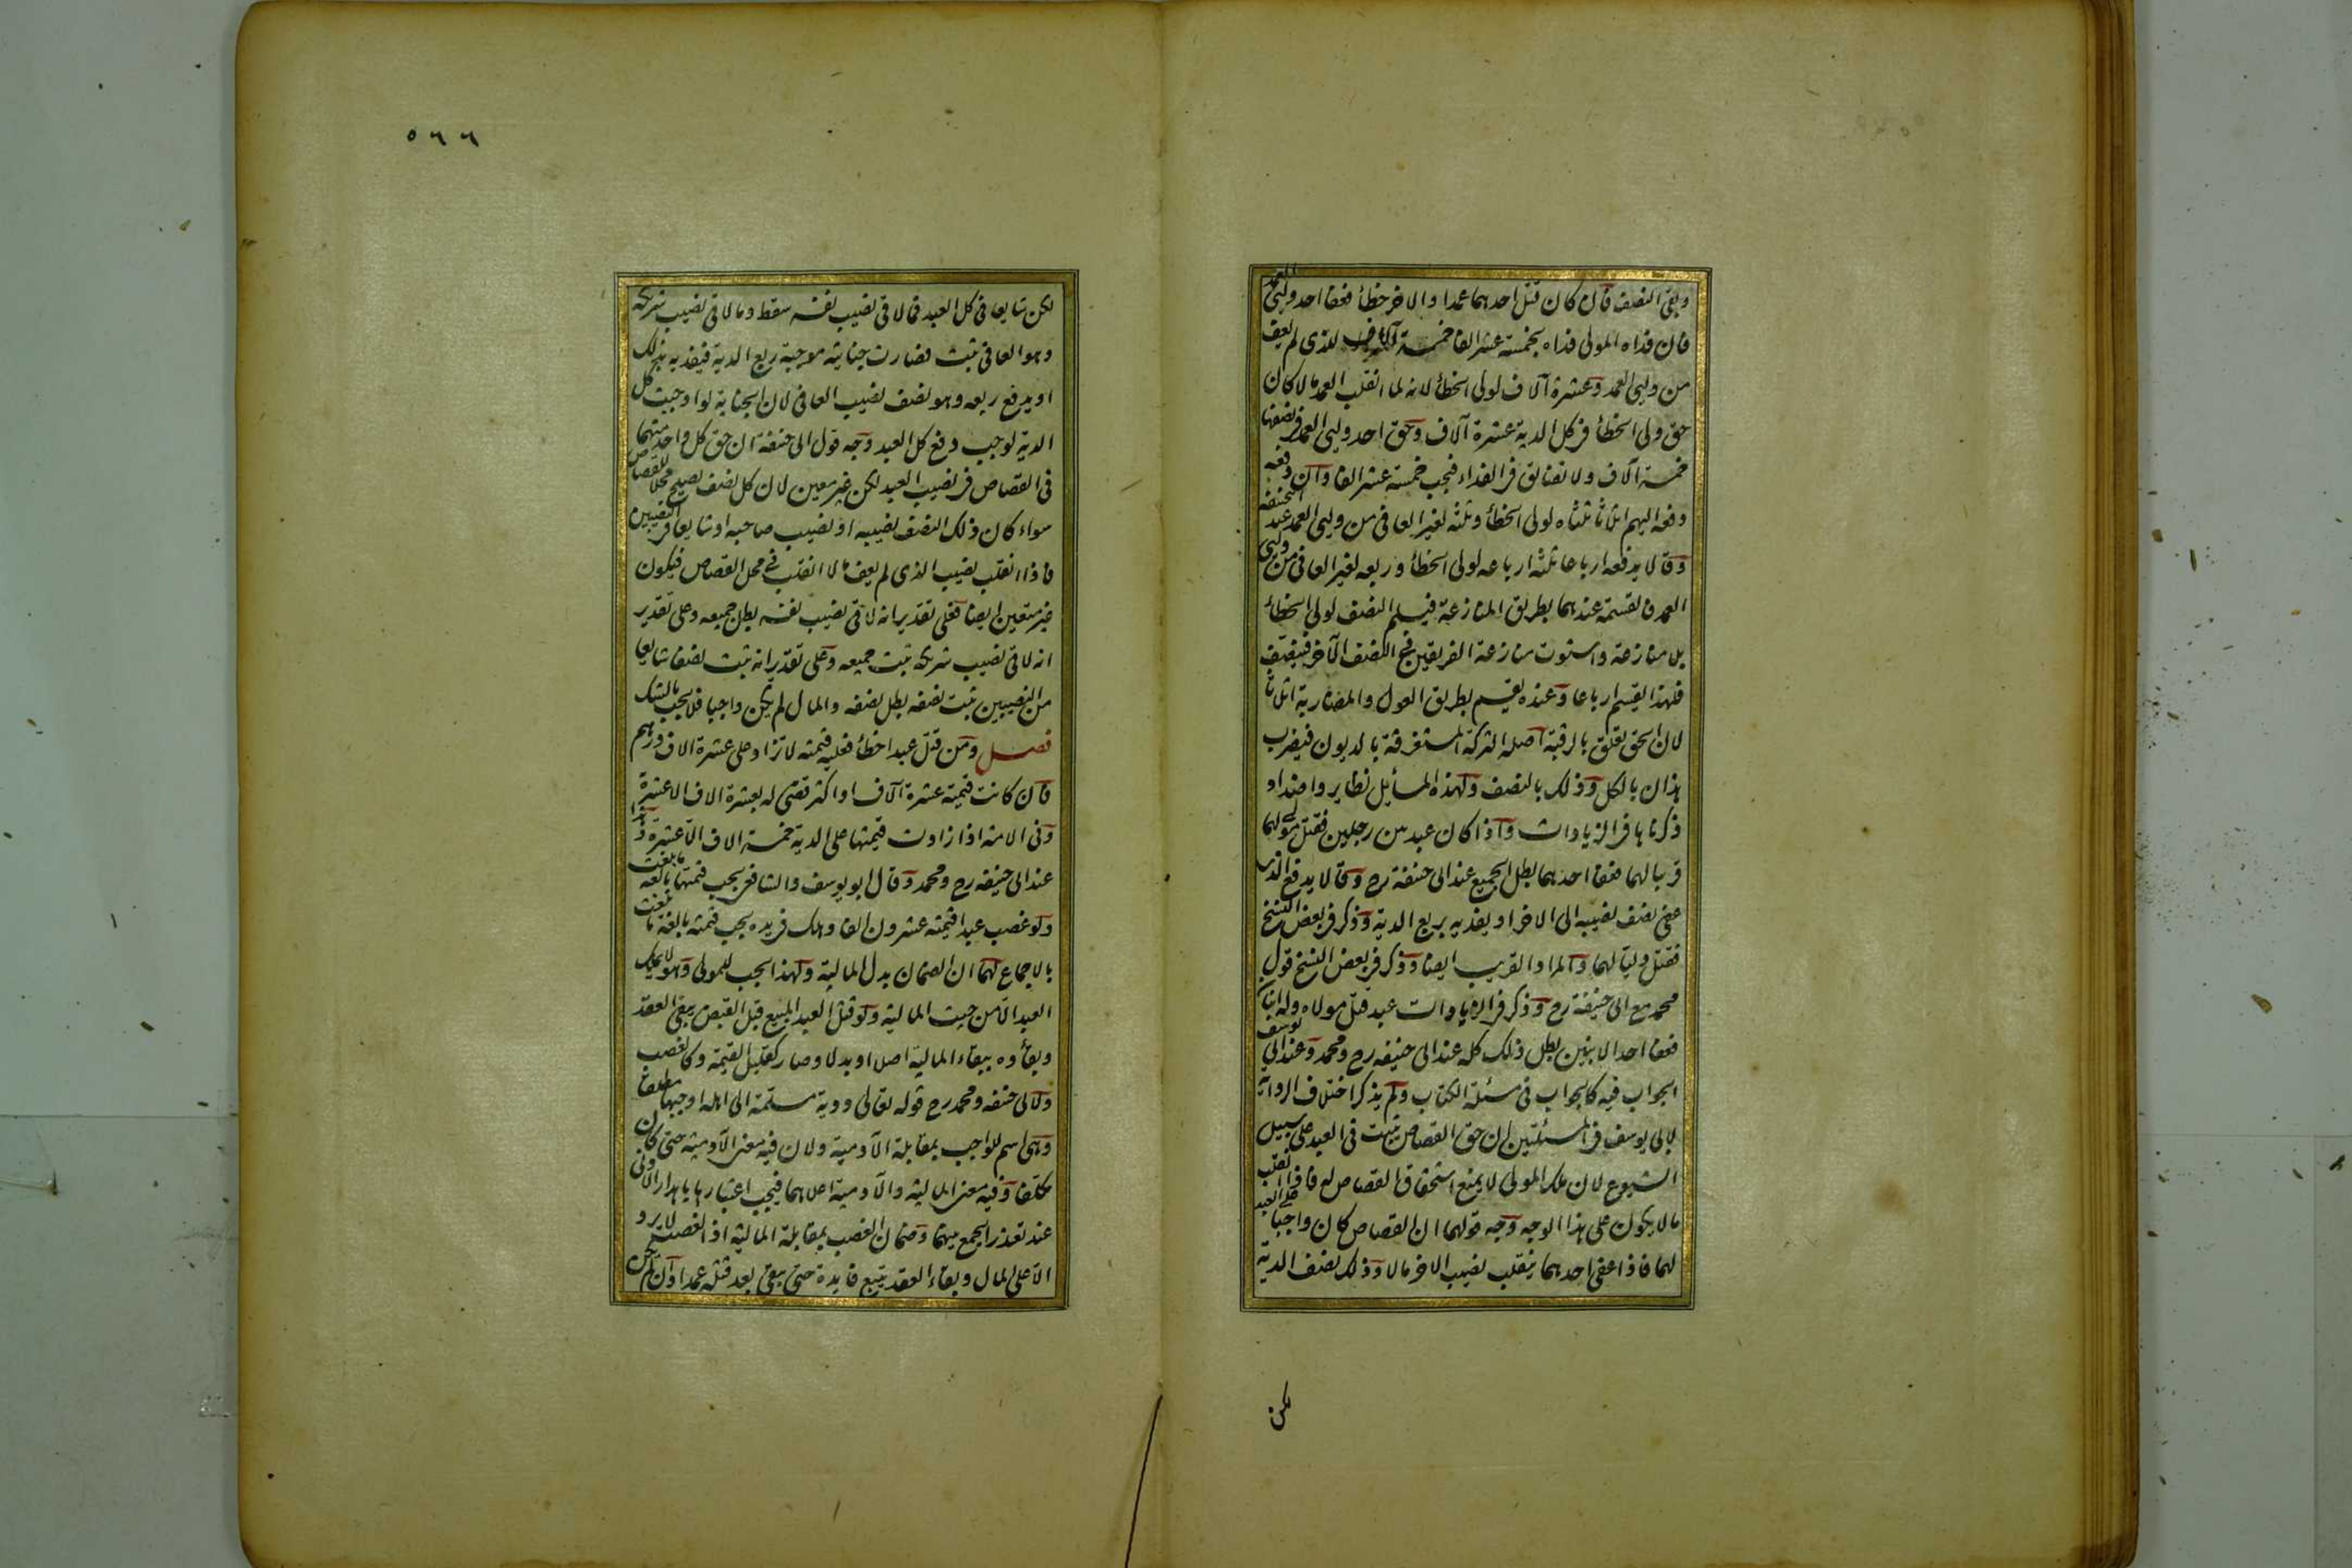 وبقي النصف فان كان قتل احدهما عمدا والاخر خطأ فعفا احد وليي العمد
فان فداه المولى فداه بخمسة عشر الفا خمسة آلاف للذي لم يعف
من وليي العمد وعشرة آلاف لولي الخطأ لانه لما انقلب العمد مالا كان
حق ولي الخطأ في كل الدية عشرة آلاف وحق احد وليي العمد في نصفها
خمسة آلاف ولا تضايق في الفداء فيجب خمسة عشر الفا وان دفعه
دفعه اليهم اثلاثا ثلثاه لولي الخطأ وثلثه لغير العافي من وليي العمد عند ابي حنيفة
وقالا يدفعه ارباعا ثلثة ارباعه لولي الخطأ وربعه لغير العافي من وليي
العمد فالقسمة عندهما بطريق المنازعة فيسلم النصف لولي الخطأ
بلا منازعة واستوت منازعة الفريقين في النصف الآخر فينصف
فلهذا يقسم ارباعا وعنده يقسم بطريق العول والمضاربة اثلاثا
لان الحق تعلق بالرقبة اصله التركة المستغرقة بالديون فيضرب
هذان بالكل وذلك بالنصف ولهذه المسايل نظاير واضداد
ذكرناها في الزيادات واذا كان عبد بين رجلين فقتل مولى لهما
قريبا لهما فعفا احدهما بطل الجميع عند ابي حنيفة رح وقالا يدفع الذي
عفى نصف نصيبه الى الاخر او يفديه بربع الدية وذكر في بعض النسخ
فقتل وليا لهما والمراد القريب ايضا وذكر في بعض النسخ قول
محمد مع ابي حنيفة رح وذكر في الزيادات عبد قتل مولاه وله ابنان
فعفا احد الابنين بطل ذلك كله عند ابي حنيفه رح ومحمد وعند ابي يوسف
الجواب فيه كالجواب في مسئلة الكتاب ولم يذكر اختلاف الرواية
لابي يوسف في المسئلتين ان حق القصاص ثبت في العبد على سبيل
الشيوع لان ملك المولى لا يمنع استحقاق القصاص له فاذا انقلب
مالا يكون على هذا الوجه وجه قولهما ان القصاص كان واجبا على العبد
لهما فاذا عفى احدهما ينقلب نصيب الاخر مالا وذلك نصف الدية
لكن
٥٦٦
لكن شايعا في كل العبد فما لاقى نصيب نفسه سقط وما لاقى نصيب شريكه
وهو العافي ثبت فصارت جنايته موجبة ربع الدية فيفديه بذلك
او يدفع ربعه وهو نصف نصيب العافي لان الجناية لو اوجبت كل
الدية لوجب دفع كل العبد وجه قول ابي حنفة ان حق كل واحد منهما
في القصاص في نصيب العبد لكن غير معين لان كل نصف يصلح محلا للقصاص
سواء كان ذلك النصف نصيبه او نصيب صاحبه او شايعا في النصيبين
فاذا انقلب نصيب الذي لم يعف مالا انقلب في محل القصاص فيكون
غير متعين ايضا فعلى تقدير انه لاقى نصيب نفسه بطل جميعه وعلى تقدير
انه لاقى نصيب شريكه ثبت جميعه وعلى تقدير انه ثبت نصفا شايعا
من النصيبين ثبت نصفه بطل نصفه والمال لم يكن واجبا فلا يجب بالشك
فصل ومن قتل عبدا خطأ فعليه قيمته لا تزاد على عشرة الاف درهم
فان كانت قيمته عشرة آلاف او اكثر قضى له بعشرة الاف الا عشرة
وفى الامة اذا زادت قيمتها على الدية خمسة الاف الا عشرة وهذا
عند ابي حنيفه رح ومحمد وقال ابو يوسف والشافعي يجب قيمتها بالغة ما بلغت
ولو غصب عبدا قيمته عشرون الفا وهلك في يده يجب قيمته بالغة ما بلغت
بالاجماع لهما ان الضمان بدل المالية ولهذا يجب للمولى وهو لا يملك
العبد الا من حيث المالية ولو قتل العبد المبيع قبل القبض يبقى العقد
وبقاؤه ببقاء المالية اصلا وبدلا وصار كقليل القيمة وكالغصب
ولابي حنفه ومحمد رح قوله تعالى ودية مسلمة الى اهله اوجبها مطلقا
وهي اسم للواجب بمقابلة الآدمية ولان فيه معنى الآدمية حتى كان
مكلفا وفيه معنى المالية والآدمية اعلاهما فيجب اعتبارها باهدار الادنى
عند تعذر الجمع بينهما وضمان الغصب بمقابلة المالية اذ الغصب لا يرد
الا على المال وبقاء العقد يتبع فايدة حتى يبقى بعد قتله عمدا وان لم يكن